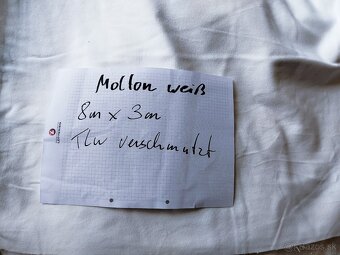 Molton weiß
8m x 3m
TLW verschmutzt